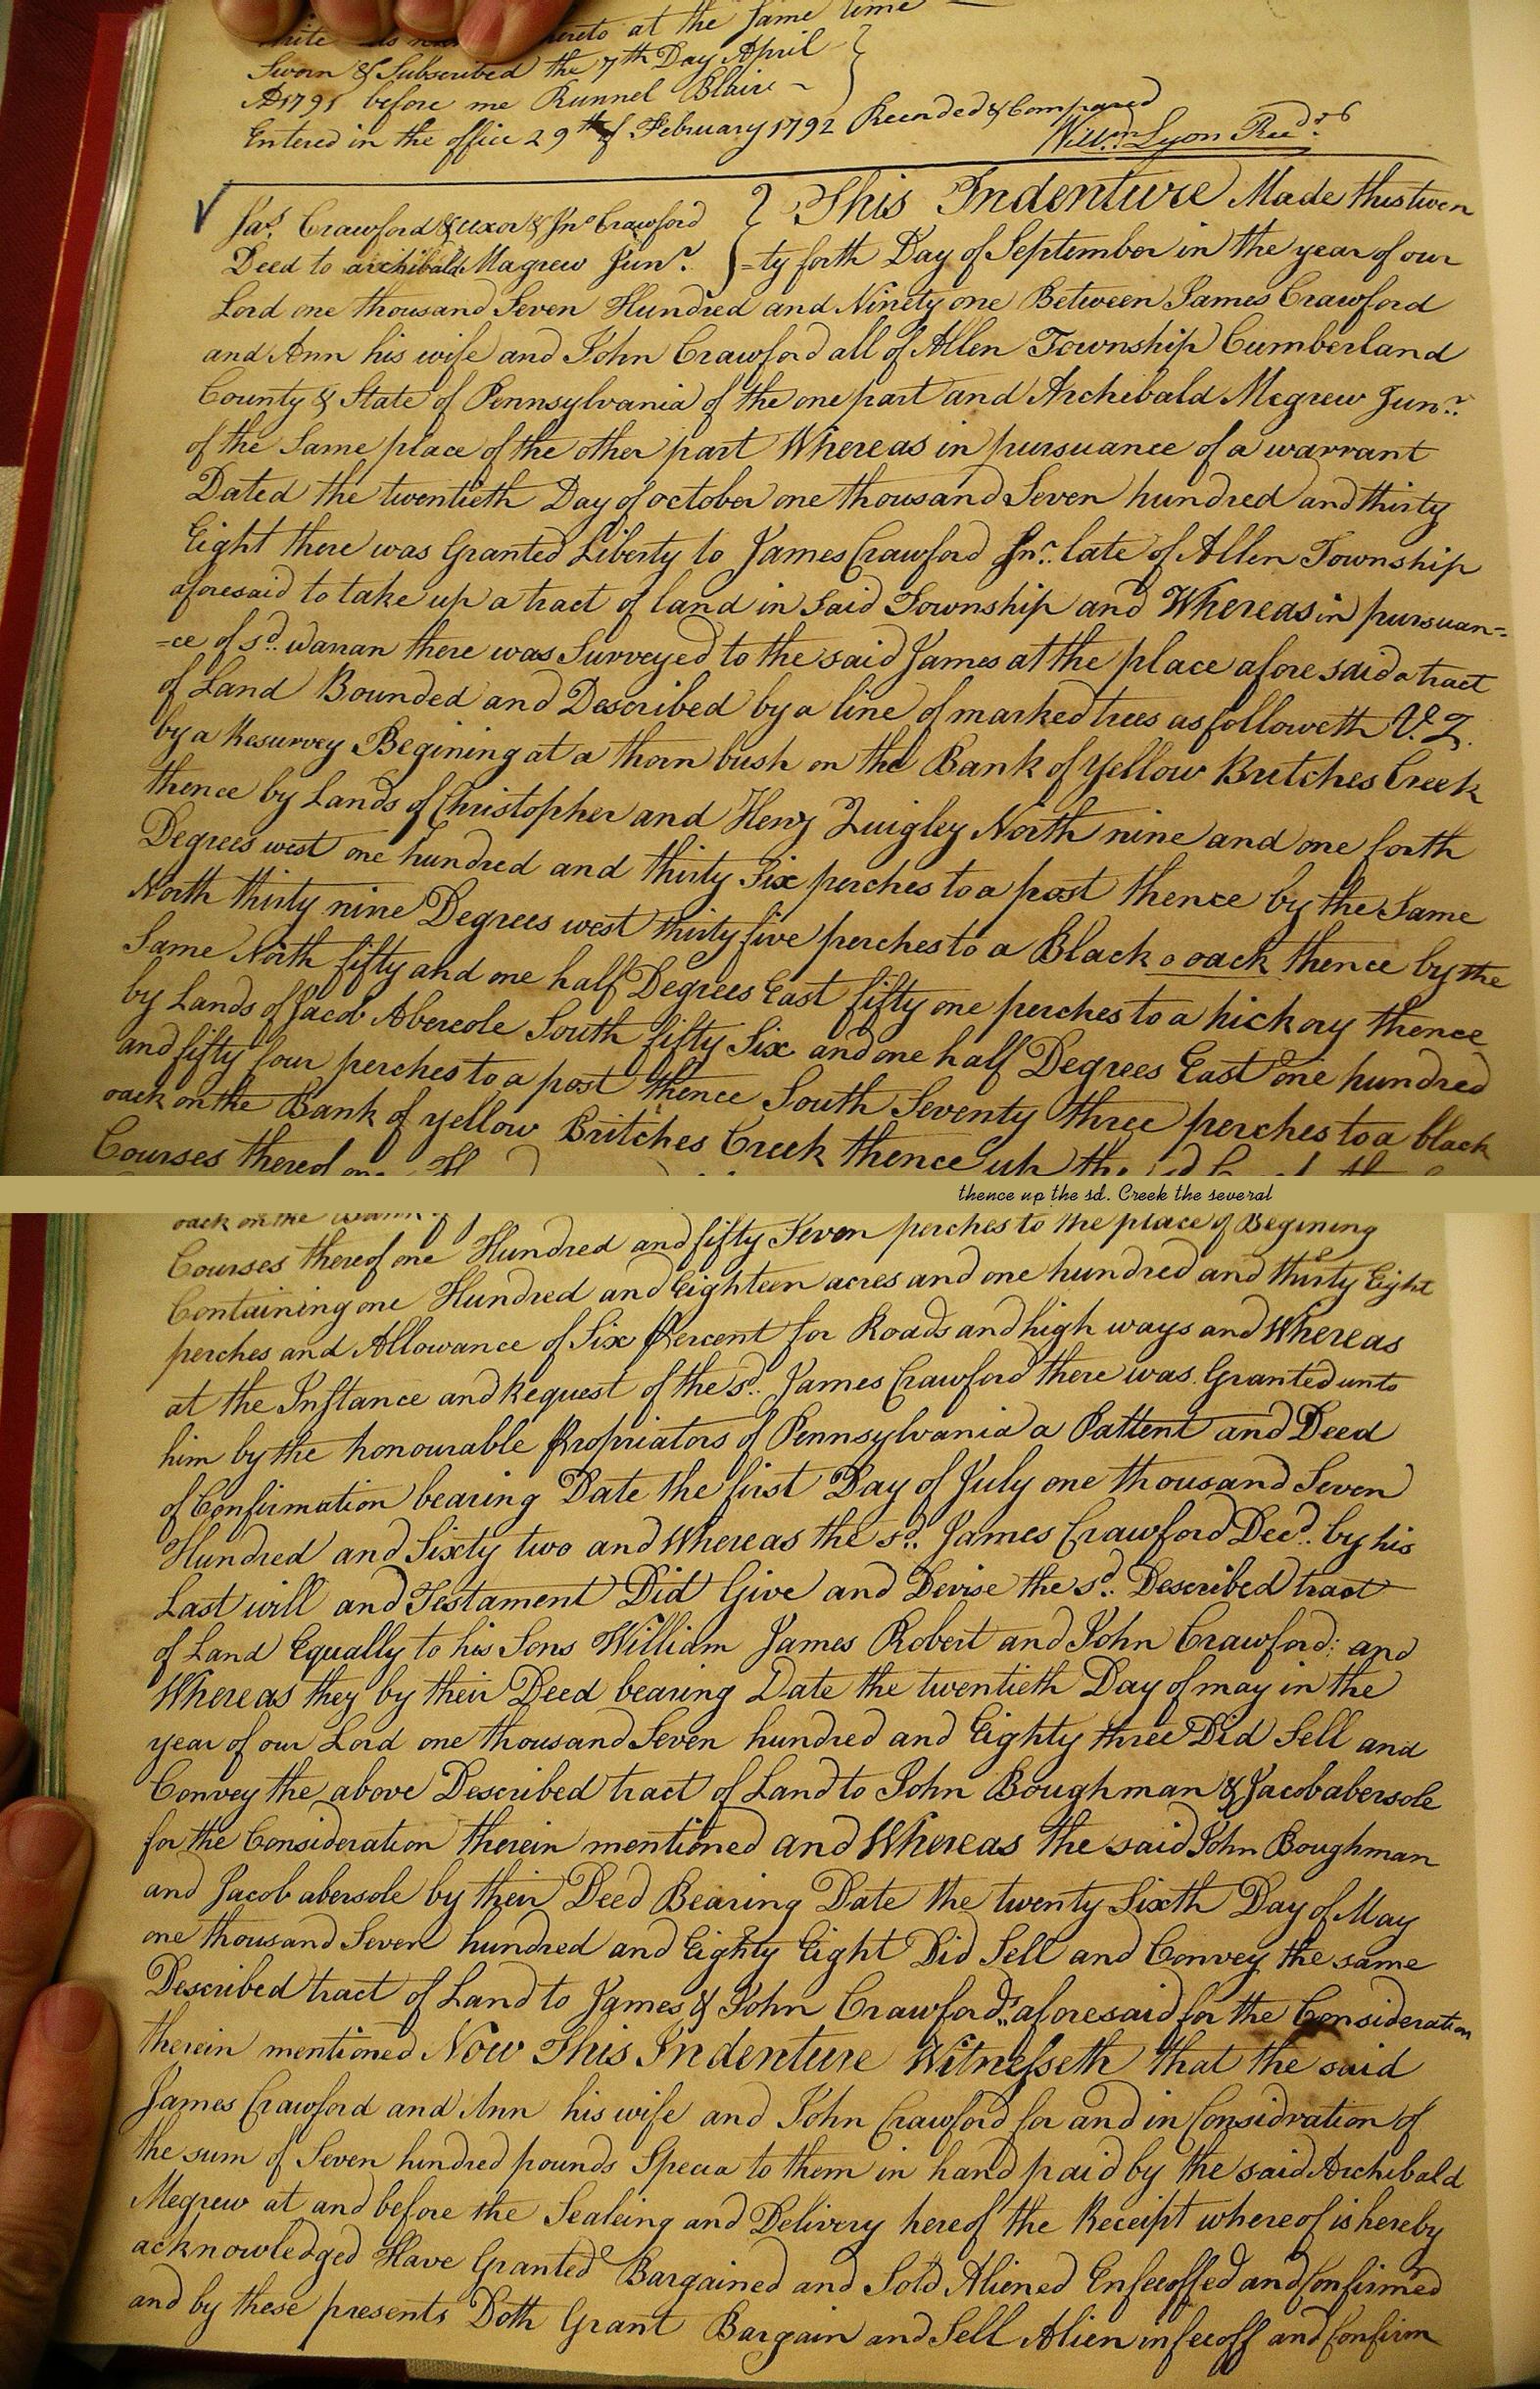 hereto at the Same time
Sworn & Subscribed the 7th Day April
AD 1791 before me Runnel Blair
Entered in the office 29th of February 1792 Recorded & Compared
Willm Lyon Recdr
Jas. Crawford & uxor & Jno Crawford
Deed to archibald Magrew Junr.
This Indenture Made this twen
=ty forth Day of September in the year of our
Lord one thousand Seven Hundred and Ninety one Between James Crawford
and Ann his wife and John Crawford all of Allen Township Cumberland
County & State of Pennsylvania of the one part and Archibald Megrew Junr.
of the Same place of the other part Whereas in pursuance of a warrant
Dated the twentieth Day of october one thousand Seven hundred and thirty
Eight there was Granted Liberty to James Crawford Jnr. late of Allen Township
aforesaid to take up a tract of land in Said Township and Whereas in pursuan=
=ce of sd. warran there was Surveyed to the said James at the place afore said a tract
of Land Bounded and Described by a line of marked trees as followeth V.Z.
by a Resurvey Begining at a thorn bush on the Bank of Yellow Britches Creek
thence by Lands of Christopher and Henry Quigley North nine and one forth
Degrees west one hundred and thirty Six perches to a post thence by the Same
North thirty nine Degrees west thirty five perches to a Black o oack thence by the
Same North fifty and one half Degrees East fifty one perches to a hickory thence
by Lands of Jacob Abersole South fifty Six and one half Degrees East one hundred
and fifty four perches to a post thence South Seventy three perches to a black
oack on the Bank of yellow Britches Creek thence up the sd
Courses thereof one
thence up the sd. Creek the several
oack on the Bank of perches to the place of Begining
Courses thereof one Hundred and fifty Seven
Containing one Hundred and Eighteen acres and one hundred and thirty Eight
perches and Allowance of Six Percent for Roads and high ways and Whereas
at the Instance and Request of the sd. James Crawford there was Granted unto
him by the honourable Propriators of Pennsylvania a Pattent and Deed
of Confirmation bearing Date the first Day of July one thousand Seven
Hundred and Sixty two and Whereas the sd. James Crawford Decd. by his
Last will and Testament Did Give and Devise the sd. Described tract
of Land Equally to his Sons William James Robert and John Crawford: and
Whereas they by their Deed bearing Date the twentieth Day of may in the
year of our Lord one thousand Seven hundred and Eighty three Did Sell and
Convey the above Described tract of Land to John Boughman & Jacob abersole
for the Consideration therein mentioned and Whereas the said John Boughman
and Jacob abersole by their Deed Bearing Date the twenty Sixth Day of May
one thousand Seven hundred and Eighty Eight Did Sell and Convey the same
Described tract of Land to James & John Crawfords aforesaid for the Consideration
therein mentioned Now This Indenture Witnesseth that the said
James Crawford and Ann his wife and John Crawford for and in Considration of
the sum of Seven hundred pounds Specia to them in hand paid by the said Archibald
Megrew at and before the Sealeing and Delivery hereof the Receipt whereof is hereby
acknowledged Have Granted Bargained and Sold Aliened Enfeoffed and Confirmed
and by these presents Doth Grant Bargain and Sell Alien infeoff and Confirm